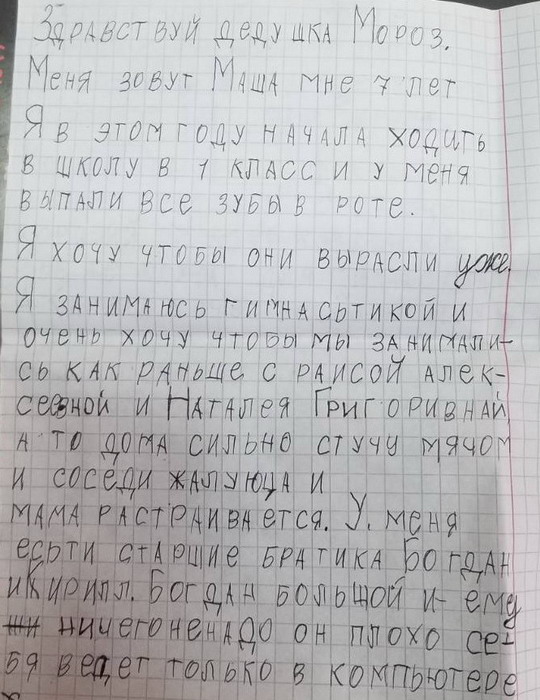 Здравствуй дедушка Мороз.
Меня зовут Маша мне 7 лет
Я в этом году начала ходить
в школу в 1 класс и у меня
выпали все зубы в роте.
Я хочу чтобы они вырасли уже.
Я занимаюсь гимнасьтикой и
очень хочу чтобы мы занимали-
сь как раньше с Раисой Алек-
сеевной и Наталея Григоривнай,
а то дома сильно стучу мячом
и соседи жалуюца и
мама растраивается. У. меня
есьти старшие братика Богдан
и Кирилл. Богдан большой и ему
ничего ненадо он плохо се-
бя ведет только в компьютере